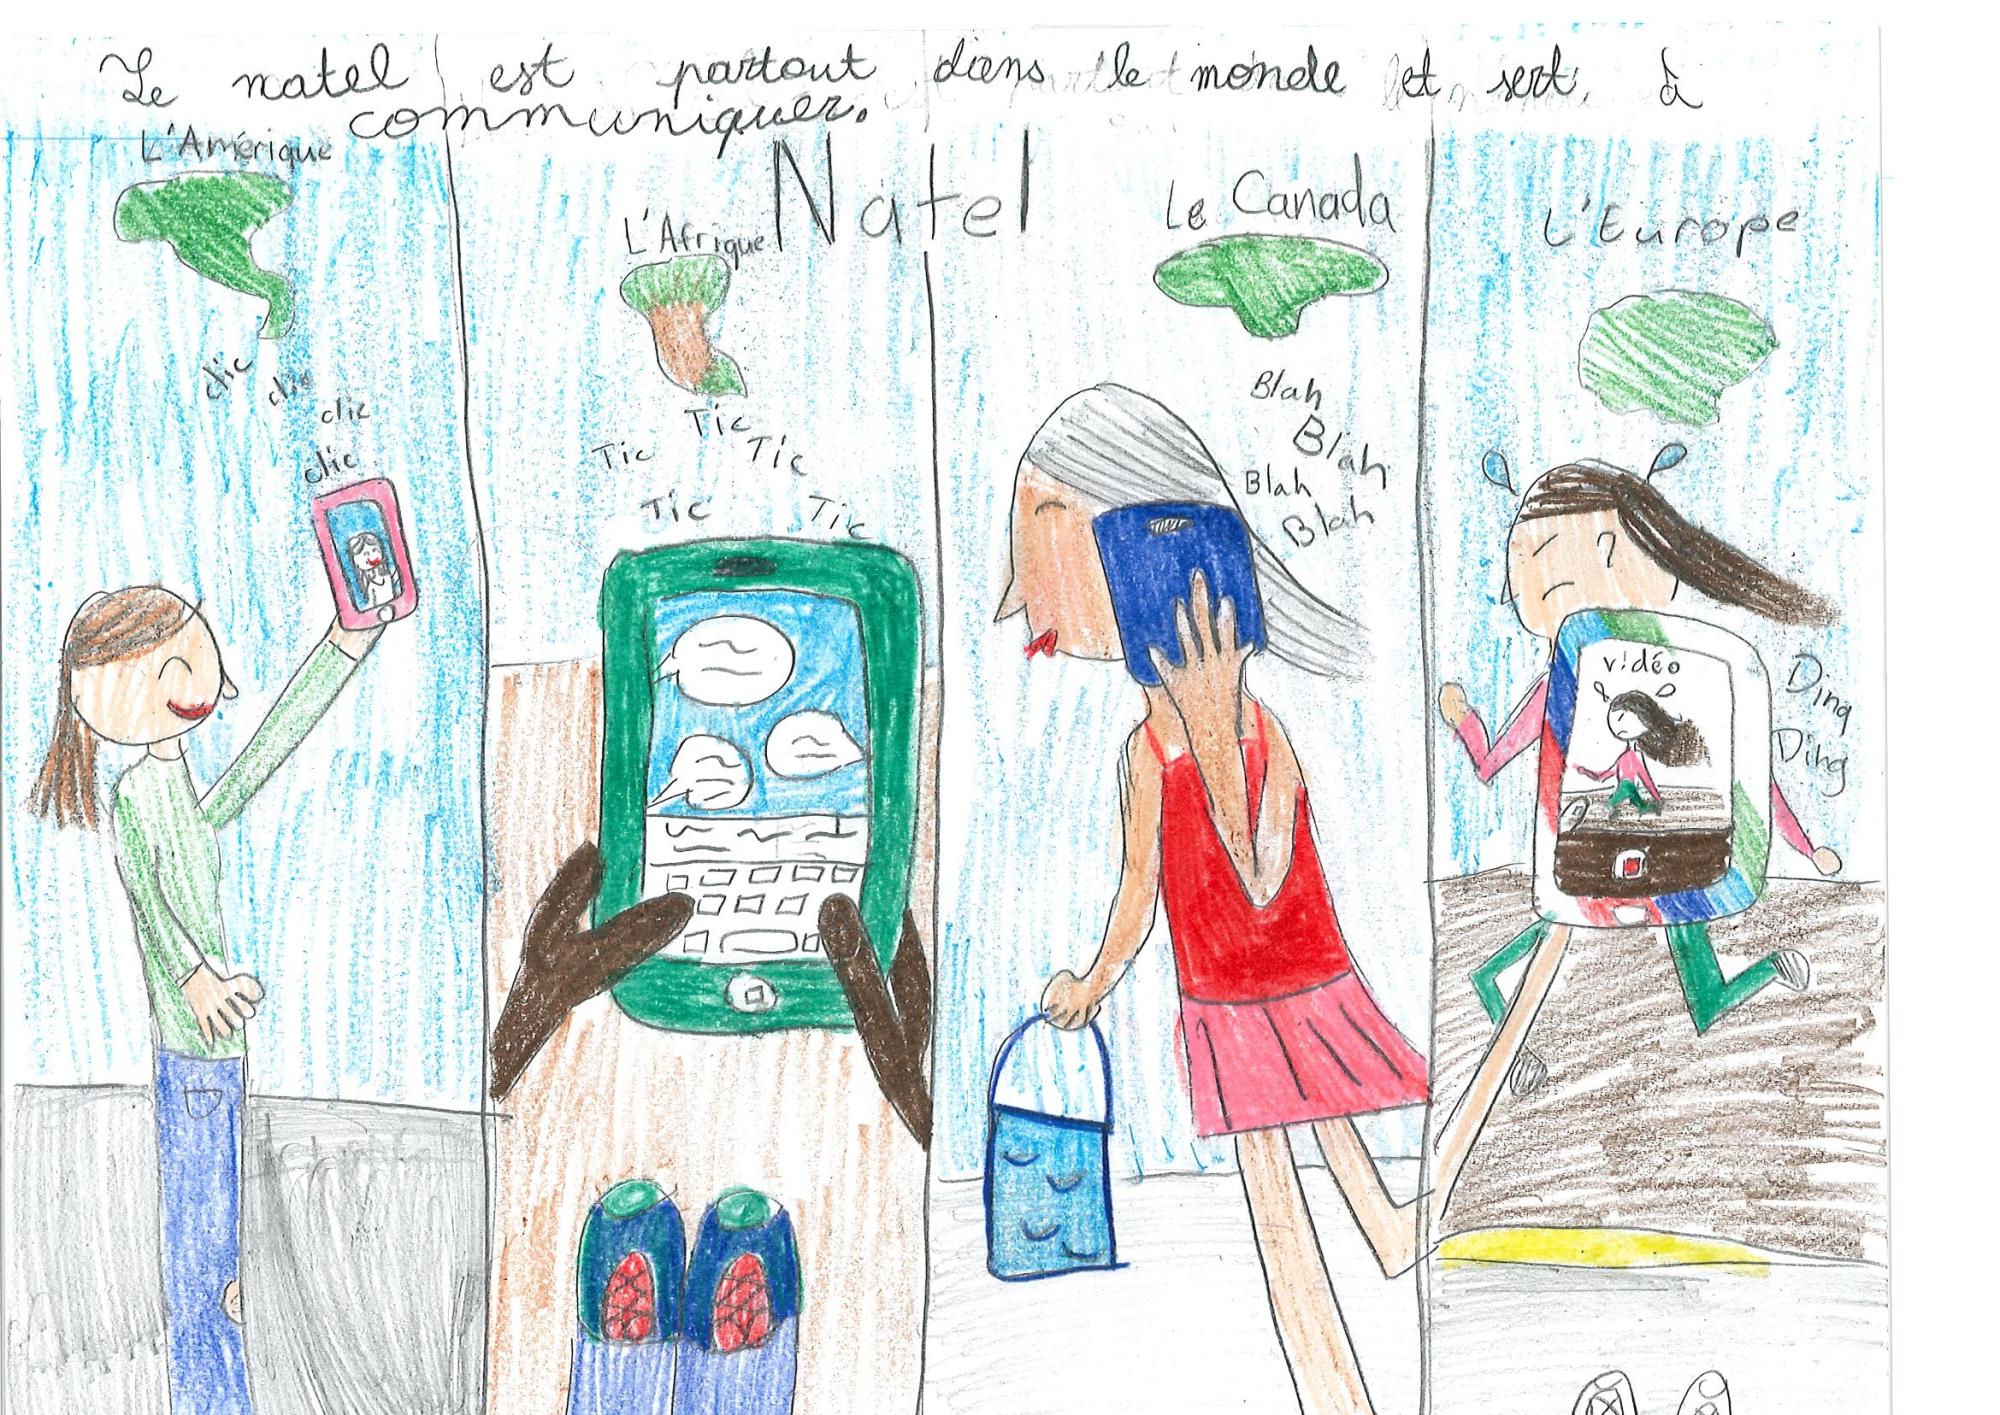 Le natel est partout dans le monde et sert à
communiquer.
Natel
L'Amérique
clic
clic
clic
clic
L'Afrique
Tic
Tic
Tic
Tic
Tic
Le Canada
Blah
Blah
Blah
Blah
L'Europe
vidéo
Ding
Ding